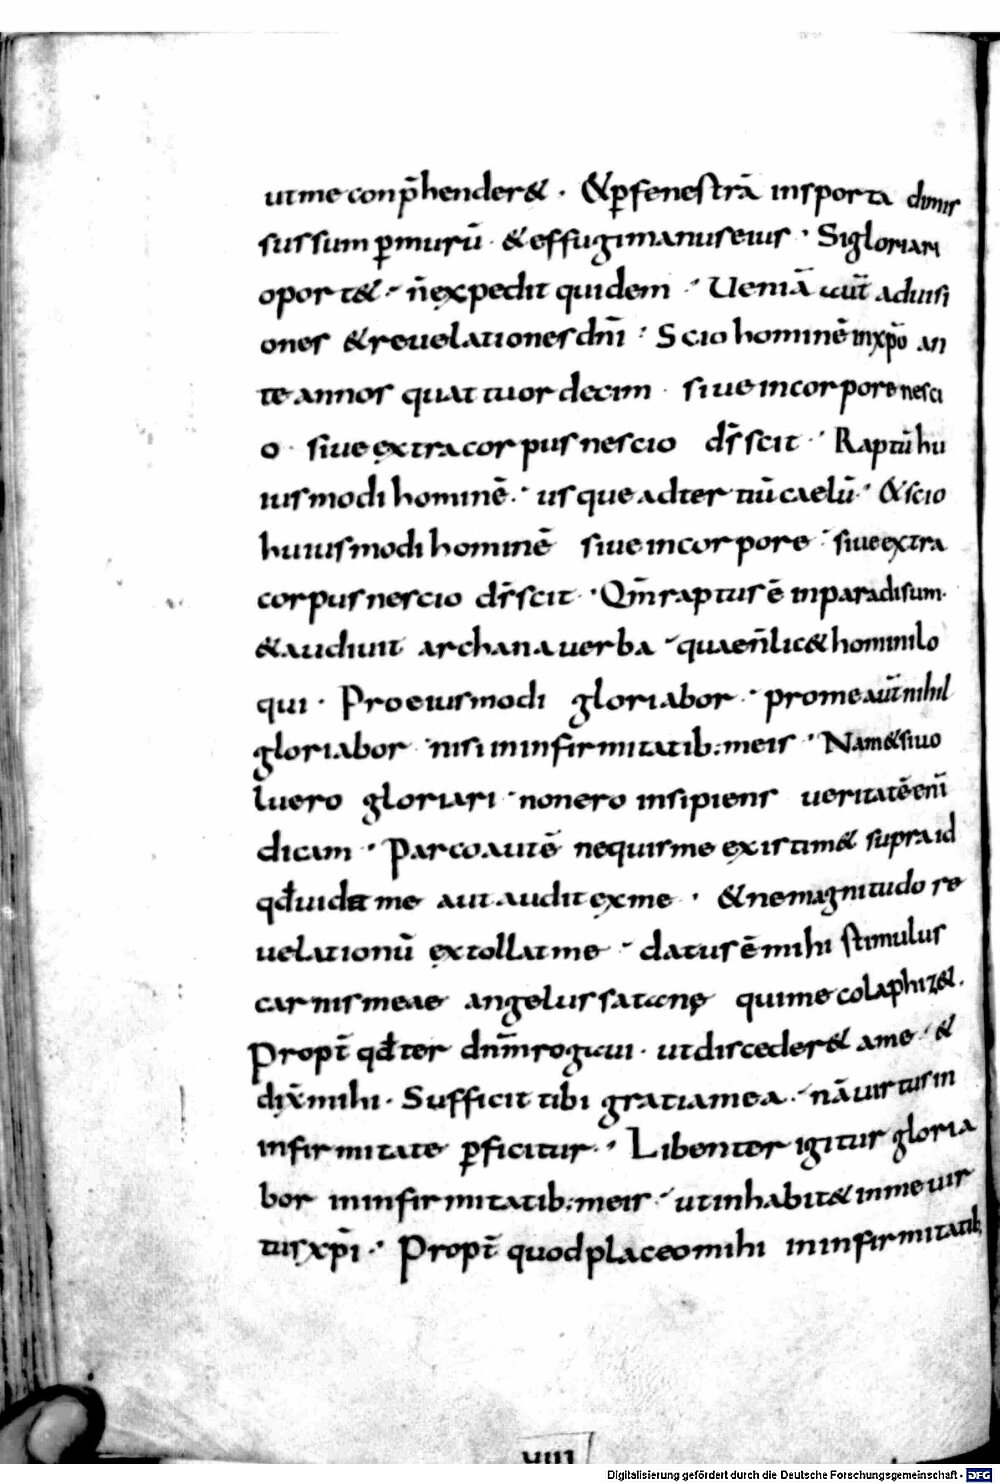 ut me conp̄hender& · &ꝑ fenestrā in sporta dimis
sus sum ꝑ murū · & effugi manus eius · Si gloriari
oport& · n̄ expedit quidem · Ueniā aut̄ ad uisi
ones & reuelationes dn̄i · Scio hominē in xp̄o an
te annos quattuordecim · siue in corpore nesci
o · siue extra corpus nescio d̄s scit · Raptū hu
iusmodi hominē · usque ad tertiū caelū · & scio
huiusmodi hominē siue in corpore · siue extra
corpus nescio d̄s scit · Qm̄ raptus ē in paradisum ·
& audiuit archana uerba · quae n̄ lic& homini lo
qui · Pro eiusmodi gloriabor · pro me aut̄ nihil
gloriabor nisi in infirmitatib: meis · Nam & si uo
luero gloriari · non ero insipiens ueritatē eni̅
dicam · Parco autē ne quis me existim& supra id
qd̄ uidet me aut audit ex me · & ne magnitudo re
uelationū extollat me · datus ē mihi stimulus
carnis meae angelus satanę qui me colaphiz& ·
Propt̄ qd̄ ter dn̄m rogaui · ut disceder& a me · &
dix̄ mihi · Sufficit tibi gratia mea · nā uirtus in
infirmitate ꝑficitur · Libenter igitur gloria
bor in infirmitatib: meis · ut inhabit& in me uir
tus xp̄i · Propt̄ quod placeo mihi in infirmitatib:
VIII
Digitalisierung gefördert durch die Deutsche Forschungsgemeinschaft - DFG